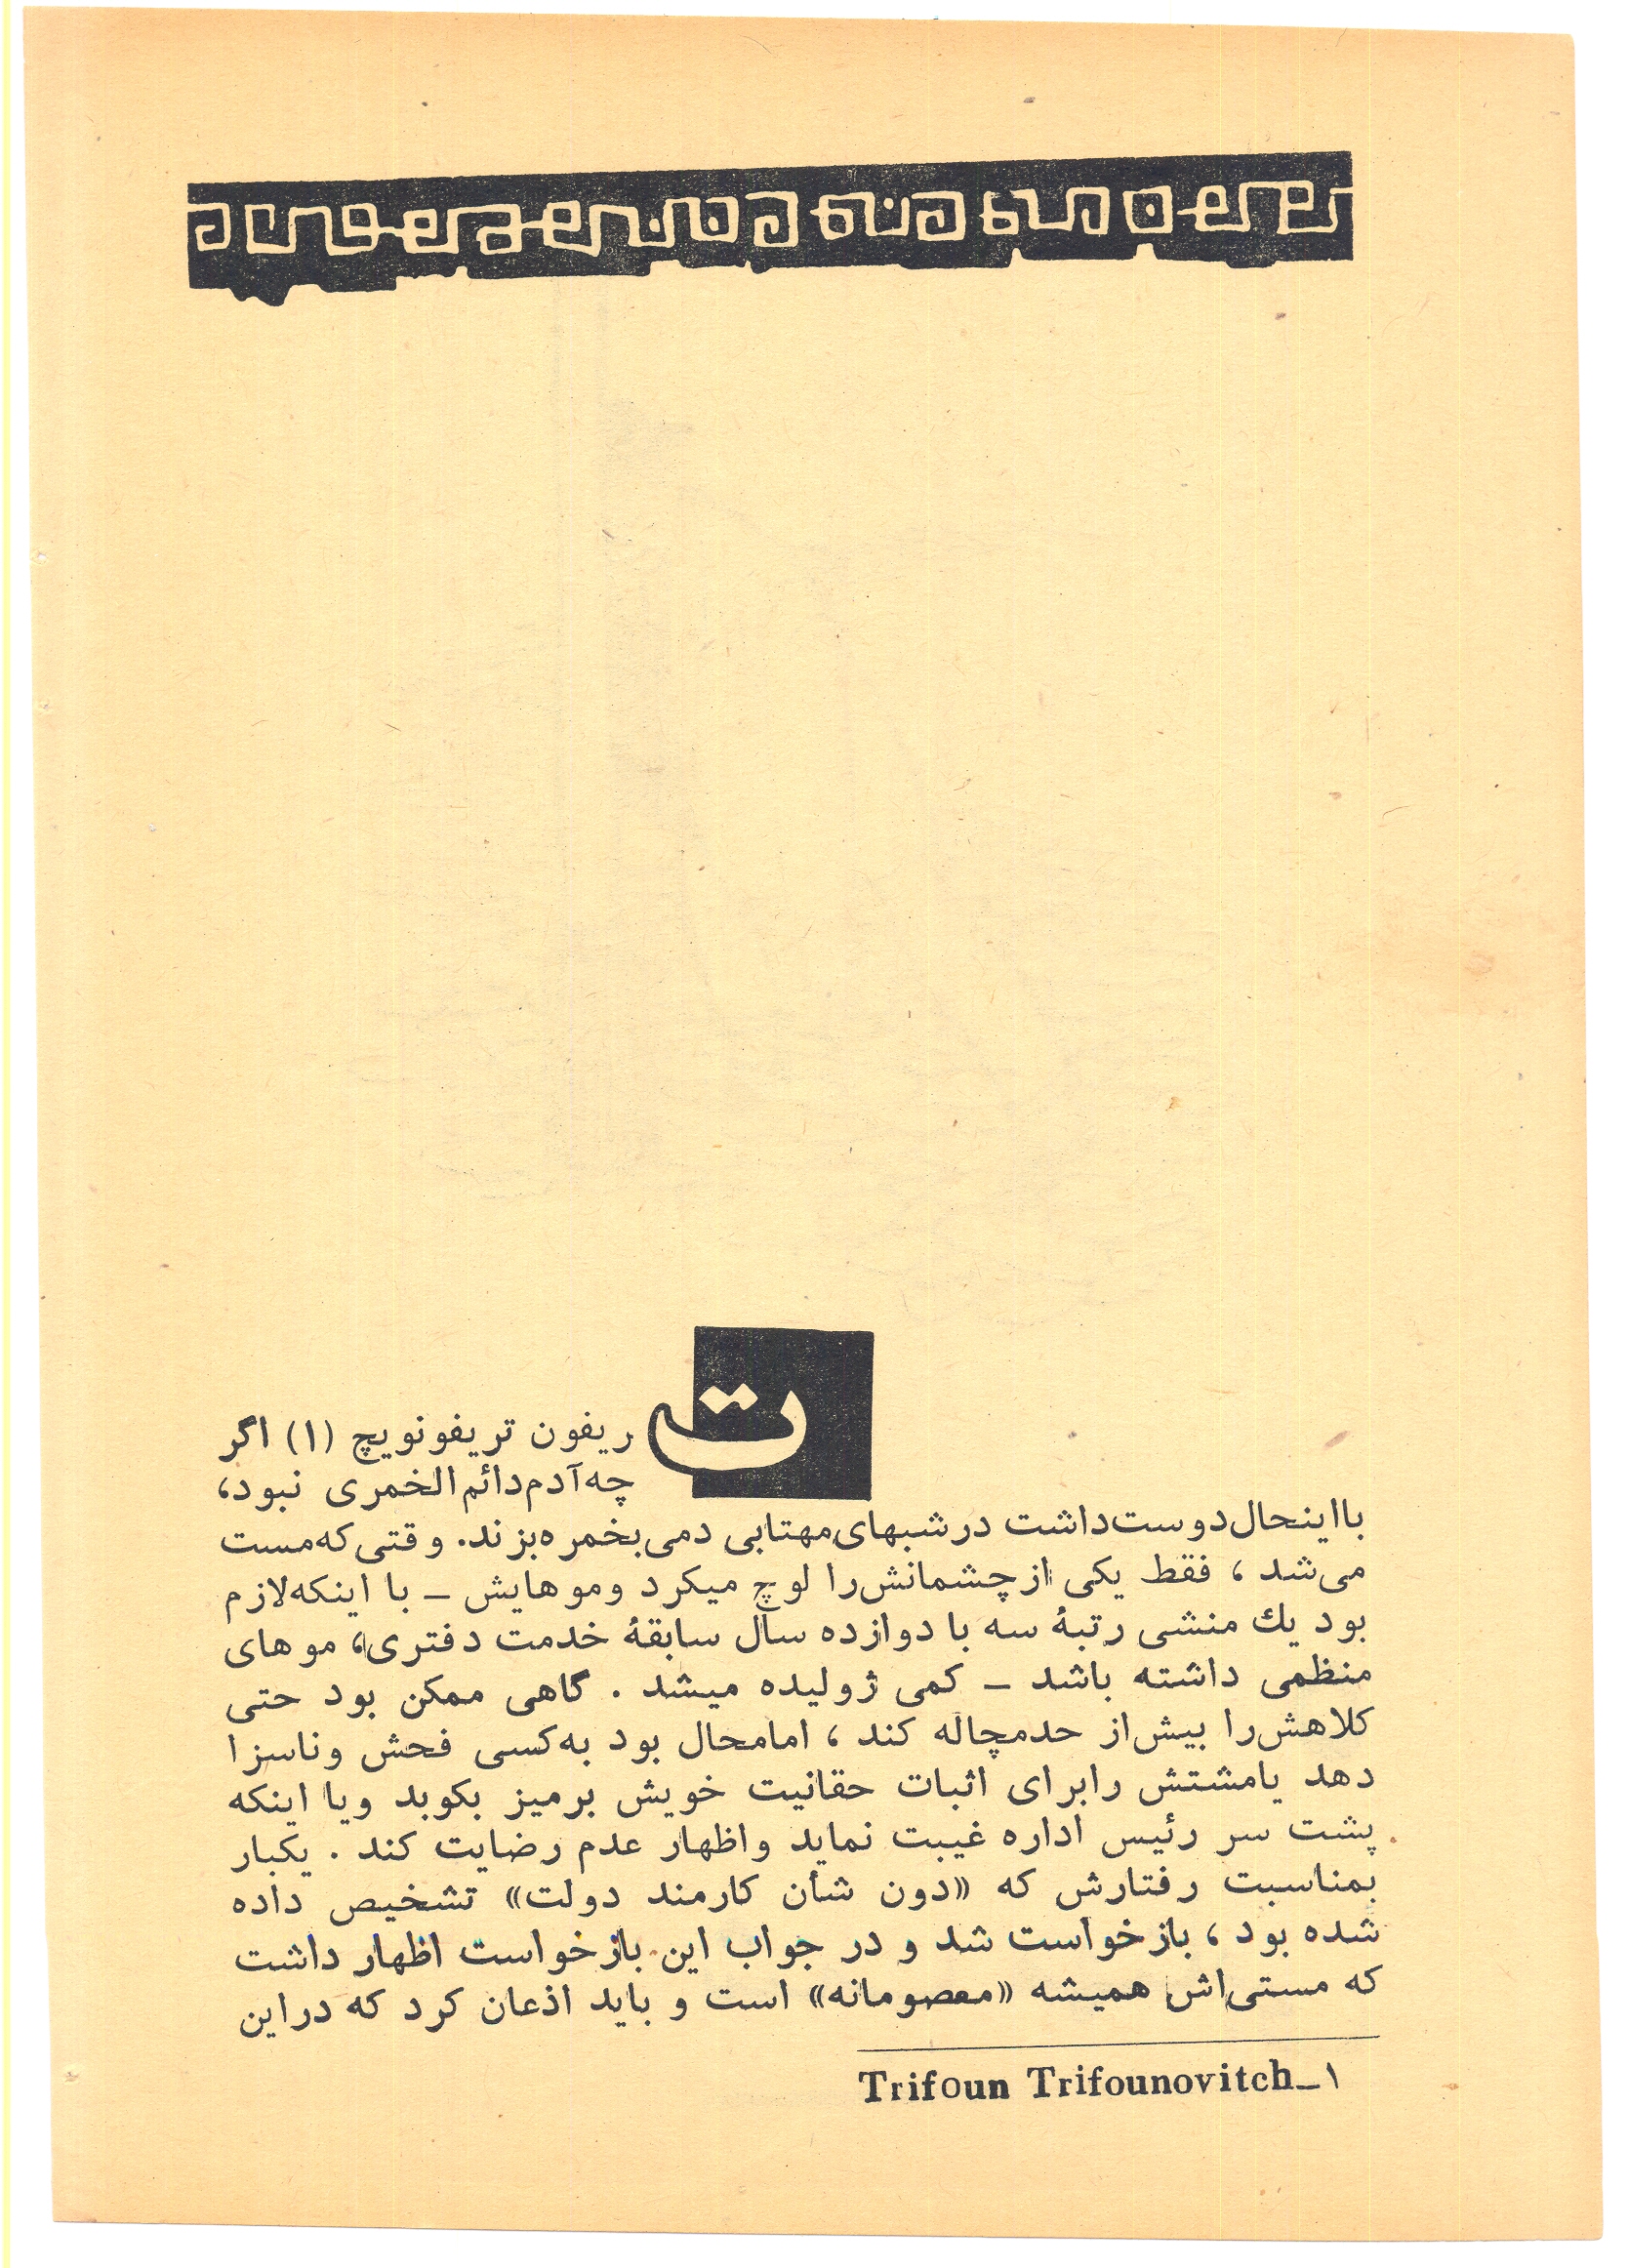 تریفون تریفونویچ (۱) اگر
چه‌آدم‌دائم‌الخمری نبود،
بااینحال‌دوست‌داشت درشبهای‌مهتابی دمی‌بخمره‌بزند. وقتی‌که‌مست
می‌شد ، فقط یکی ازچشمانش‌را لوچ میکرد وموهایش ــ با اینکه‌لازم
بود یك منشی رتبهٔ سه با دوازده سال سابقهٔ خدمت دفتری، موهای
منظمی داشته باشد ــ کمی ژولیده میشد . گاهی ممکن بود حتی
کلاهش‌را بیش‌از حدمچاله کند ، امامحال بود به‌کسی فحش وناسزا
دهد یامشتش رابرای اثبات حقانیت خویش برمیز بکوبد ویا اینکه
پشت سر رئیس اداره غیبت نماید واظهار عدم رضایت کند . یکبار
بمناسبت رفتارش که «دون شأن کارمند دولت» تشخیص داده
شده بود ، بازخواست شد و در جواب این بازخواست اظهار داشت
که مستی‌اش همیشه «معصومانه» است و باید اذعان کرد که دراین
۱ــ Trifoun Trifounovitch